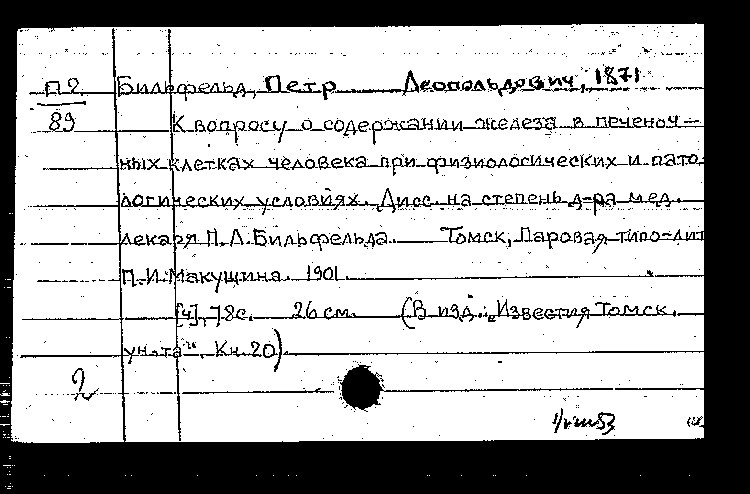 П2 Бильфельд, Петр Леопольдович, 1871
89 К вопросу о содержании железа в печеноч-
ных клетках человека при физиологических и пато-
логических условиях. Дисс. на степень д-ра мед.
лекаря П.Л.Бильфельда. Томск, Паровая типо-лит
П.И.Макушина. 1901.
[4], 78с. 26 см. (В изд.: „Известия Томск.
ун-та". Кн. 20).
2